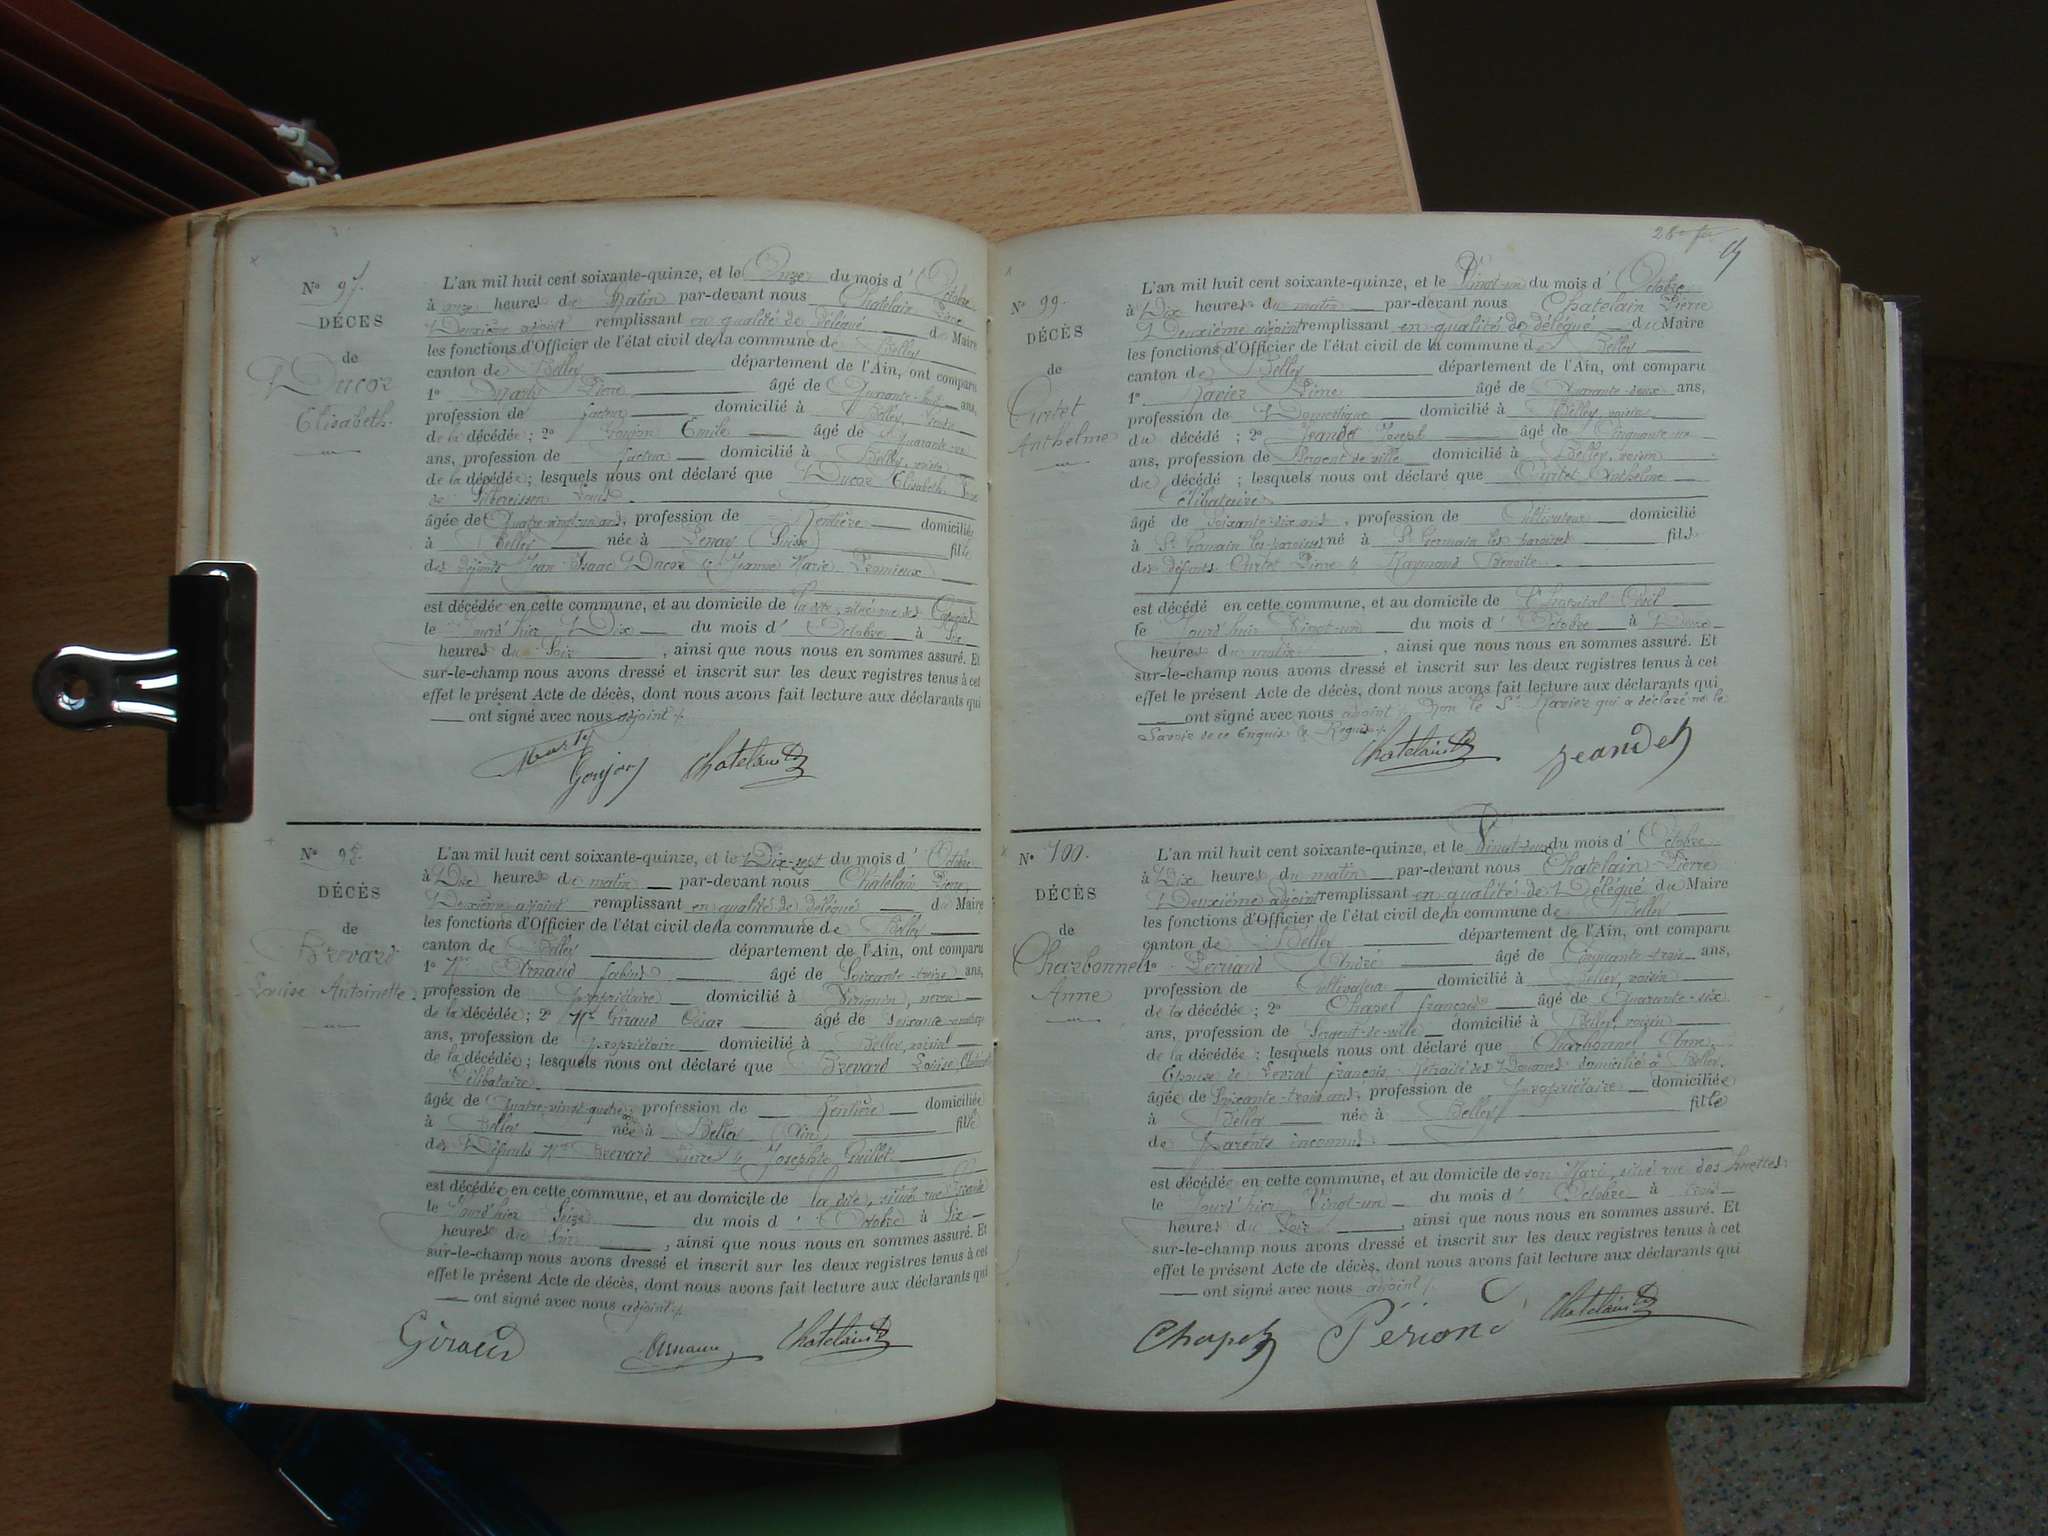 N° 97.
DÉCÈS
de
Ducoz
Elisabeth.
L'an mil huit cent soixante-quinze, et le Onze du mois d'Octobre
à onze heures du Matin par-devant nous Chatelain Pierre
Deuxième adjoint remplissant en qualité de Délégué du Maire
les fonctions d'Officier de l'état civil de la commune de Belley
canton de Belley département de l'Ain, ont comparu
1° Marty Pierre âgé de Quarante-huit ans,
profession de facteur domicilié à Belley,
de la décédée ; 2° Goujon Emile âgé de Quarante-un
ans, profession de facteur domicilié à Belley, voisin
de la décédée ; lesquels nous ont déclaré que Ducoz Elisabeth
de Louis
âgée de Quatre-vingt-un ans, profession de Rentière domiciliée
à Belley née à (Suisse) fille
des défunts Jean Isaac Ducoz & Jeanne Marie
est décédée en cette commune, et au domicile de la dite, situé rue des
le jourd'hier Dix du mois d'Octobre à Six
heures du Soir , ainsi que nous nous en sommes assuré. Et
sur-le-champ nous avons dressé et inscrit sur les deux registres tenus à cet
effet le présent Acte de décès, dont nous avons fait lecture aux déclarants qui
ont signé avec nous adjoint
Marty
Goujon
Chatelain
N° 98.
DÉCÈS
de
Brevard
Louise Antoinette.
L'an mil huit cent soixante-quinze, et le Dix-sept du mois d'Octobre
à Dix heures du matin par-devant nous Chatelain Pierre,
Deuxième adjoint remplissant en qualité de délégué du Maire
les fonctions d'Officier de l'état civil de la commune de Belley
canton de Belley département de l'Ain, ont comparu
1° Mr Arnaud âgé de Soixante-treize ans,
profession de propriétaire domicilié à Virignin, neveu
de la décédée ; 2° Mr Giraud César âgé de Soixante-
ans, profession de propriétaire domicilié à Belley, voisin
de la décédée ; lesquels nous ont déclaré que Brevard Louise,
Célibataire
âgée de Quatre-vingt-quatre ans profession de Rentière domiciliée
à Belley née à Belley (Ain) fille
des Défunts Mr Brevard Pierre & Josephte
est décédée en cette commune, et au domicile de la dite, situé rue
le jourd'hier Seize du mois d'Octobre à Six
heures du Soir , ainsi que nous nous en sommes assuré. Et
sur-le-champ nous avons dressé et inscrit sur les deux registres tenus à cet
effet le présent Acte de décès, dont nous avons fait lecture aux déclarants qui
ont signé avec nous adjoint
Giraud
Chatelain
N° 99.
DÉCÈS
de
Curtet
Anthelme
L'an mil huit cent soixante-quinze, et le Vingt-un du mois d'Octobre
à Dix heures du matin par-devant nous Chatelain Pierre
Deuxième adjoint remplissant en qualité de délégué du Maire
les fonctions d'Officier de l'état civil de la commune de Belley
canton de Belley département de l'Ain, ont comparu
1° Raviez Pierre âgé de Quarante-deux ans,
profession de Domestique domicilié à Belley, voisin
du décédé ; 2° Jeandet Joseph âgé de Cinquante-un
ans, profession de Sergent de ville domicilié à Belley, voisin
du décédé ; lesquels nous ont déclaré que Curtet Anthelme
célibataire
âgé de soixante-six ans , profession de Cultivateur domicilié
à St Germain les paroisses né à St Germain les paroisses fils
des défunts Curtet Pierre & Raymond Benoite
est décédé en cette commune, et au domicile de l'hopital Civil
le jourd'hui Vingt-un du mois d'Octobre à Deux
heures du matin , ainsi que nous nous en sommes assuré. Et
sur-le-champ nous avons dressé et inscrit sur les deux registres tenus à cet
effet le présent Acte de décès, dont nous avons fait lecture aux déclarants qui
ont signé avec nous adjoint, non le Sr Raviez qui a déclaré ne le
Savoir de ce Enquis & Requis
Chatelain
Jeandet
N° 100.
DÉCÈS
de
Charbonnel
Anne
L'an mil huit cent soixante-quinze, et le Vingt-deux du mois d'Octobre
à Dix heures du matin par-devant nous Chatelain Pierre
Deuxième adjoint remplissant en qualité de Délégué du Maire
les fonctions d'Officier de l'état civil de la commune de Belley
canton de Belley département de l'Ain, ont comparu
1° Perriand André âgé de Cinquante-trois ans,
profession de Cultivateur domicilié à Belley, voisin
de la décédée ; 2° Chapel françois âgé de Quarante-six
ans, profession de Sergent-de-ville domicilié à Belley, voisin
de la décédée ; lesquels nous ont déclaré que Charbonnel Anne
Epouse de Levrat françois, retraité des Douanes domicilié à Belley.
âgée de Soixante-trois ans, profession de propriétaire domiciliée
à Belley née à Belley fille
de Parents inconnus
est décédée en cette commune, et au domicile de son Mari, situé rue des
le jourd'hier Vingt-un du mois d'Octobre à trois
heures du Soir , ainsi que nous nous en sommes assuré. Et
sur-le-champ nous avons dressé et inscrit sur les deux registres tenus à cet
effet le présent Acte de décès, dont nous avons fait lecture aux déclarants qui
ont signé avec nous adjoint
Chapel
Périand
Chatelain